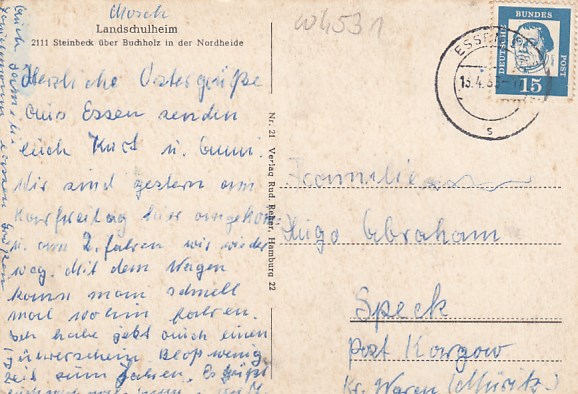 Mosch
W4531
Landschulheim
2111 Steinbeck über Buchholz in der Nordheide
Herzliche Ostergrüße
aus Essen senden
Euch Kurt u. Anni.
Wir sind gestern am
Karfreitag hier angekom.
u. am 2. fahren wir wieder
weg. Mit dem Wagen
kann man schnell
mal wohin fahren.
Ich habe jetzt auch einen
Führerschein bloß wenig
Zeit zum fahren. Es grüßt
Nr. 21 Verlag Rud. Reher, Hamburg 22
DEUTSCHE BUNDES POST
15
ESSEN
13.4.63
s
Familie
Hugo Abraham
Speck
Post Kargow
Kr. Waren (Müritz)